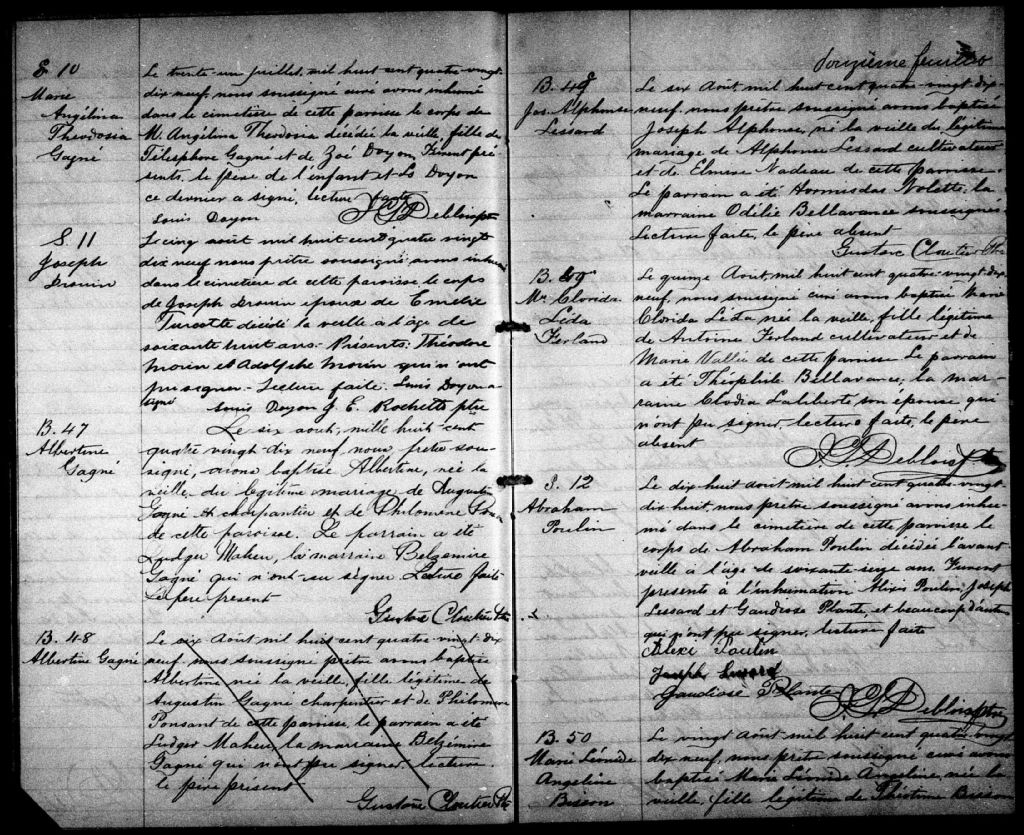 S 10
Marie
Angélina
Theodosia
Gagné
Le trente un juillet, mil huit cent quatre vingt
dix neuf, nous soussigné curé avons inhumé
dans le cimetière de cette paroisse le corps de
M. Angélina Theodosia décédée la veille, fille de
Télesphore Gagné et de Zoé Doyon, Furent pré
sents, le père de l'enfant et Ls Doyon
ce dernier a signé, lecture faite
Louis Doyon
S. 11
Joseph
Drouin
Le cinq août mil huit cent quatre vingt
dix neuf nous prêtre soussigné avons inhu
dans le cimetière de cette paroisse le corps
de Joseph Drouin époux de Emelie
Turcotte décédé la veille a l'âge de
soixante huit ans. Présents: Théodore
Morin et Adolphe Morin qui n'ont
pu signer. Lecture faite. Louis Doyon a
signé
Louis Doyon J. E. Rochette ptre
B. 47
Albertine
Gagné
Le six aout, mille huit cent
quatre vingt dix neuf nous pretre sous-
signé, avons baptisé Albertine, née la
veille, du legitime mariage de Augustin
Gagné charpentier et de Philomene
de cette paroisse. Le parrain a été
Ludger Maheu, la marraine Belzemire
Gagné qui n'ont su signer Lecture faite
Le pere present
Gustave Cloutier Ptr
B. 48
Albertine Gagné
Le six Août mil huit cent quatre vingt dix
neuf nous soussigné prêtre avons baptisé
Albertine née la veille, fille légitime de
Augustin Gagné charpentier et de Philomène
Ponsant de cette paroisse, le parrain a été
Ludger Maheu, la marraine Belzémire
Gagné qui n'ont pu signer, lecture
le père présent
Gustave Cloutier Ptr
douzième feuillet
B. 48
Jos. Alphonse
Lessard
Le six Août mil huit cent quatre vingt dix
neuf. nous prêtre soussigné avons baptisé
Joseph Alphonse, né la veille du légitime
mariage de Alphonse Lessard cultivateur
et de Elmire Nadeau de cette paroisse.
Le parrain a été Hormisdas Nolette, la
marraine Odélie Bellavance soussignés
Lecture faite, le père absent
Gustave Cloutier Ptr
B. 49
Me Clorida
Léda
Ferland
Le quinze Août, mil huit cent quatre-vingt dix
neuf, nous soussigné curé avons baptisé Marie
Clorida Léda née la veille, fille légitime
de Antoine Ferland cultivateur et de
Marie Vallée de cette paroisse Le parrain
a été Théophile Bellavance, la mar-
raine Clodia Laliberté son épouse qui
n'ont pu signer, lecture faite, le père
absent
S. 12
Abraham
Poulin
Le dix huit août mil huit cent quatre vingt
dix huit nous prêtre soussigné avons inhu-
mé dans le cimetière de cette paroisse le
corps de Abraham Poulin décédé l'avant
veille à l'âge de soixante seize ans. Furent
presents à l'inhumation Alexis Poulin, Joseph
Lessard et Gaudiose Plante, et beaucoup d'autres
qui n'ont pu signer, lecture faite
Alexi Poulin
Joseph Lessard
Gaudiose Plante
B. 50
Marie Léonide
Angeline
Bisson
Le vingt Août mil huit cent quatre-vingt
dix neuf, nous prêtre soussigné curé avons
baptisé Marie Léonide Angeline, née la
veille, fille légitime de Théotime Bisson